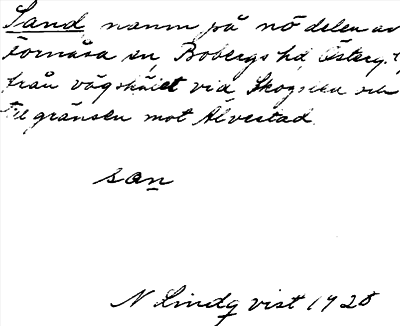 Sand, namn på nö delen av
Fornåsa sn, Bobergs hd, Österg.
från vägskälet vid till gränsen mot Älvestad.
san
N Lindqvist 1928